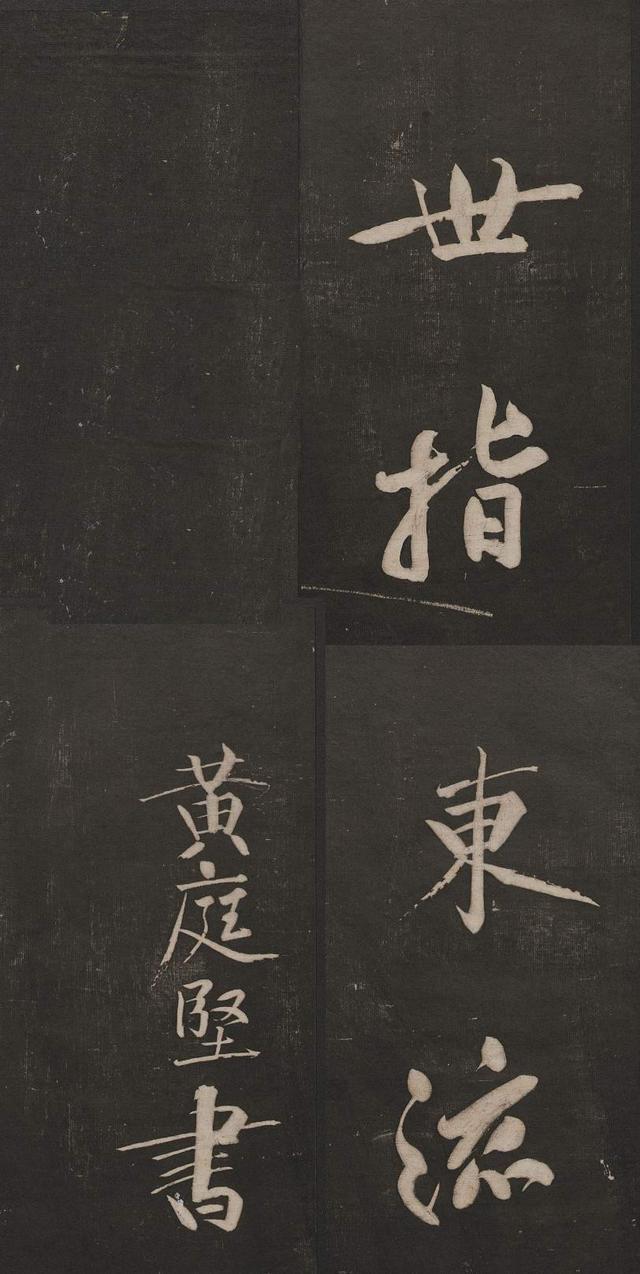 世指東流
黃庭堅書